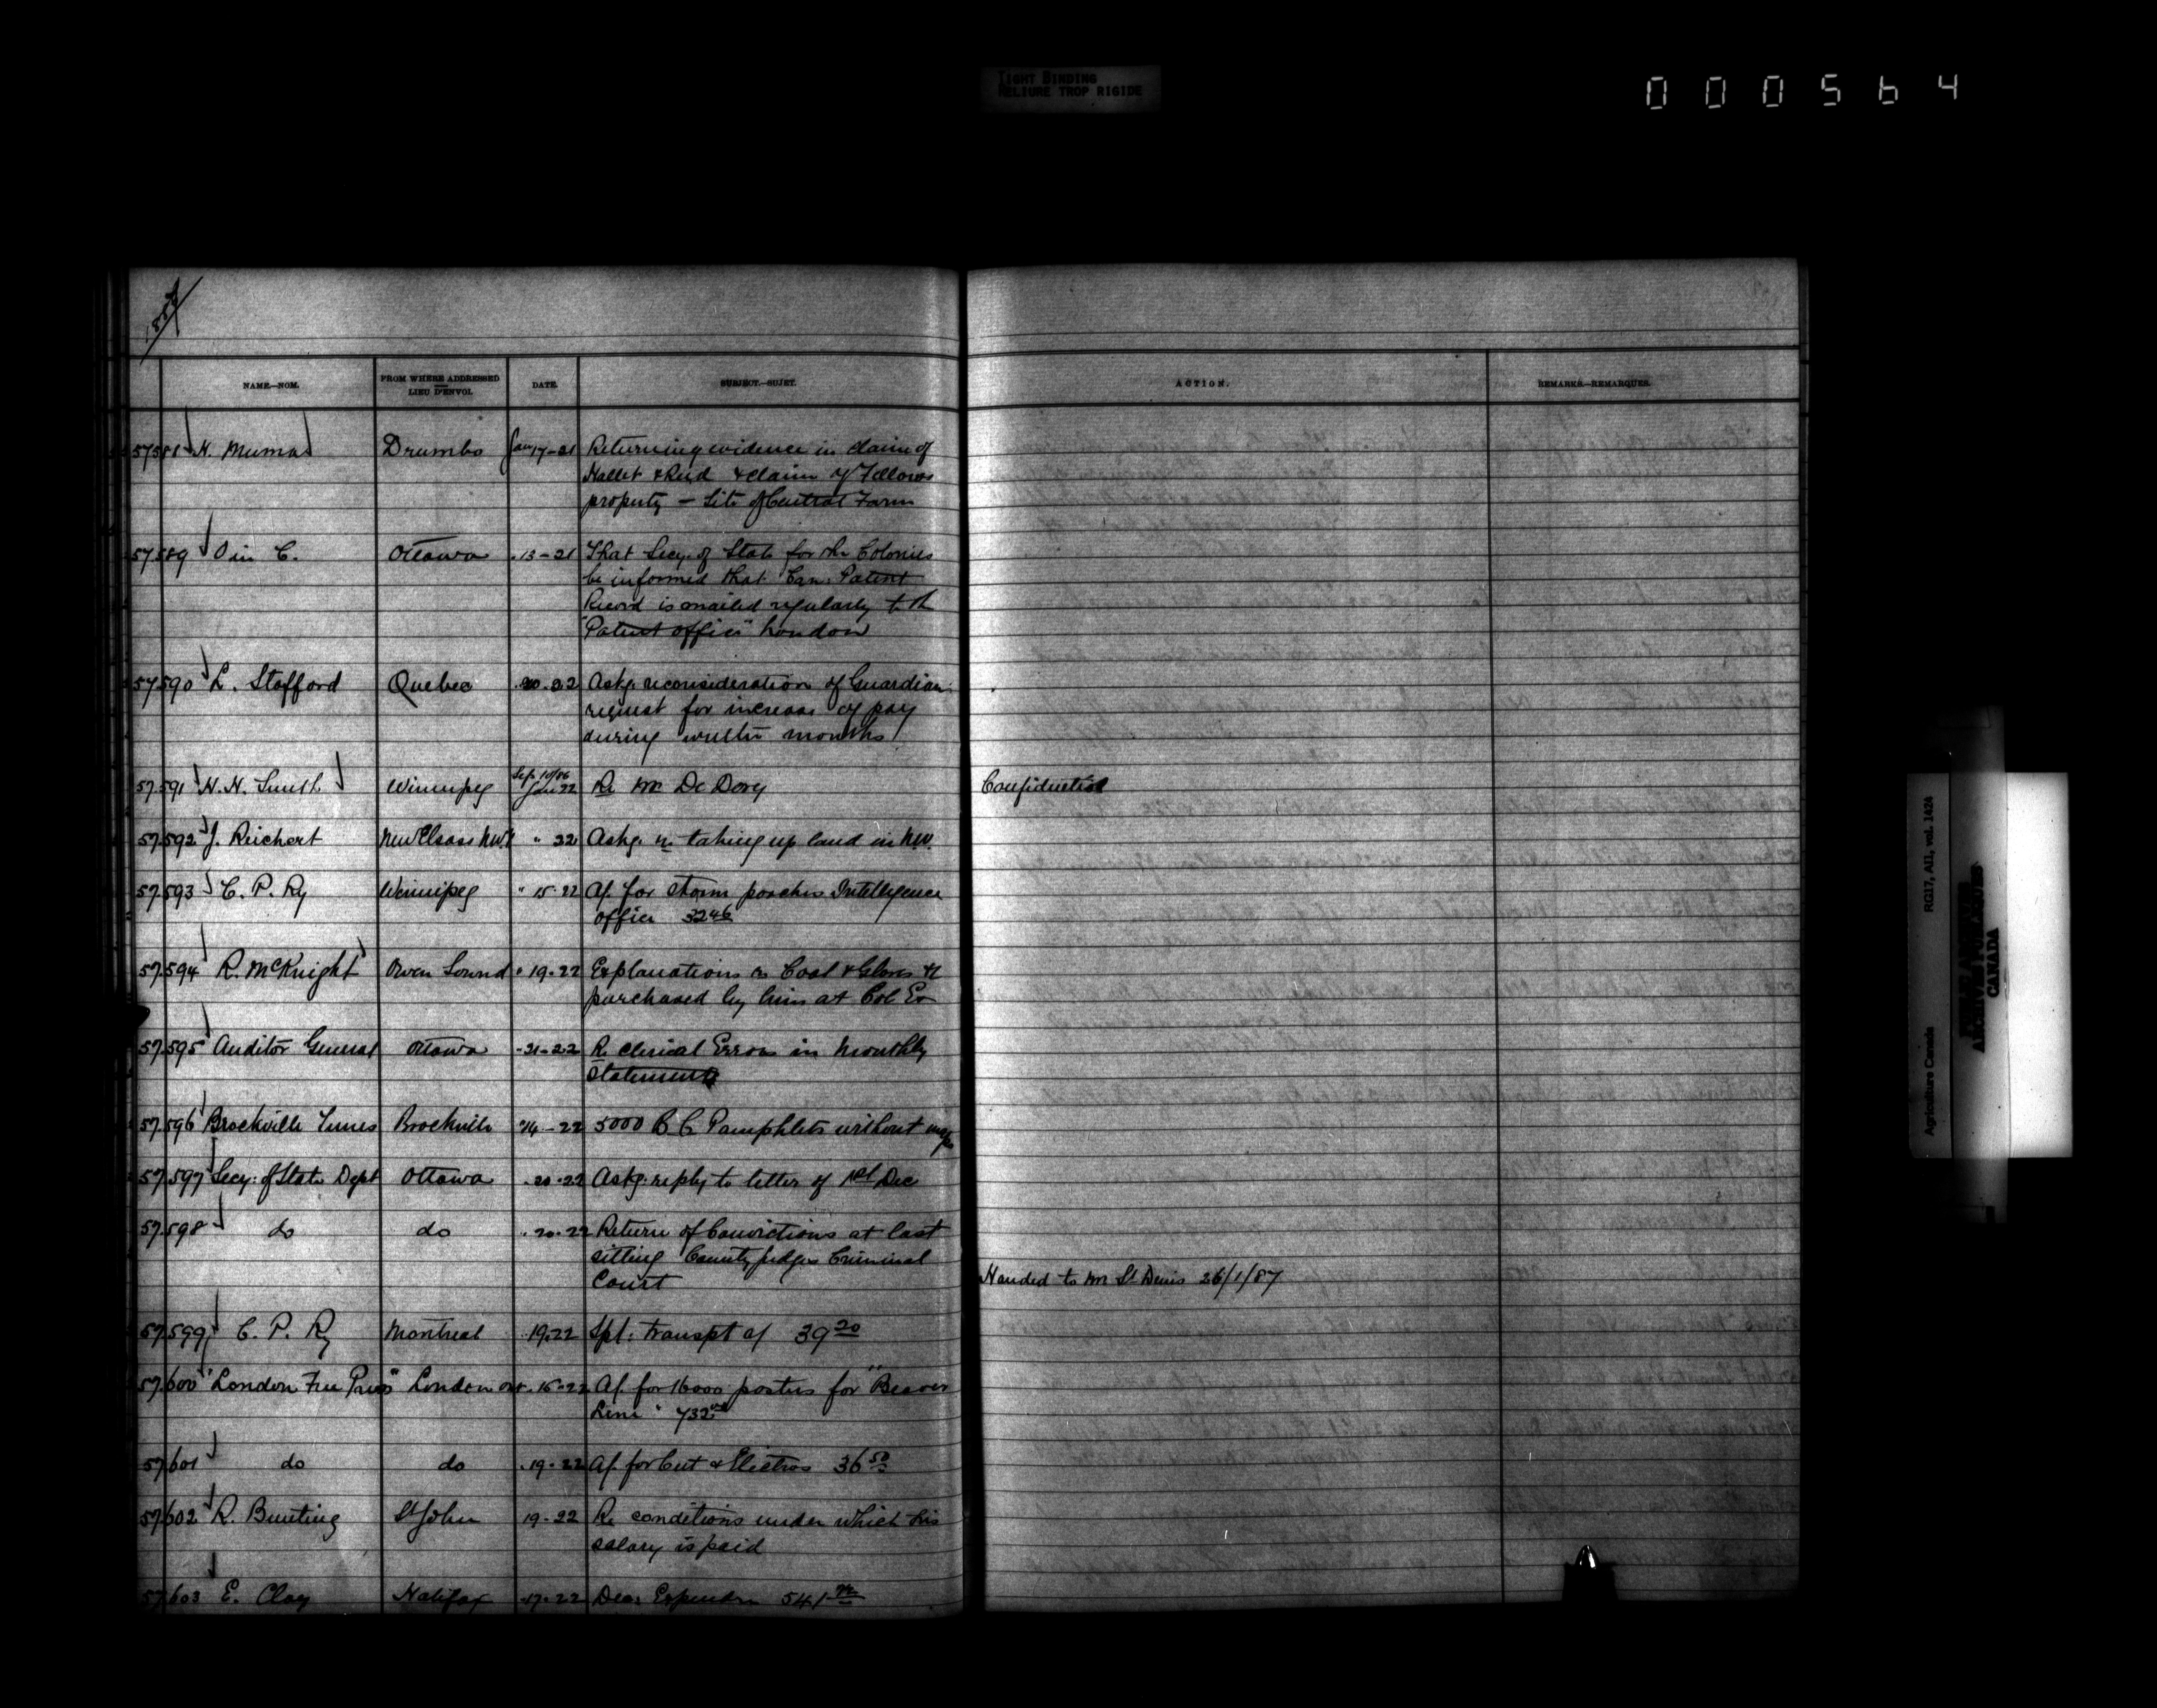 TIGHT BINDING
RELIURE TROP RIGIDE
000564
1887
NAME.—NOM. FROM WHERE ADDRESSED LIEU D'ENVOI. DATE. SUBJECT.—SUJET. ACTION. REMARKS.—REMARQUES.
57588 H. Muma Drumbo Jan 17-21 Returning evidence in claim of
Hallet & Reid & claim of Fellows
property — Site of Central Farm
57589 O in C. Ottawa 13-21 That Secy. of State for the Colonies
be informed that Can. Patent
Record is mailed regularly to the
"Patent Office" London
57590 L. Stafford Quebec 20.22 Askg. reconsideration of Guardian
request for increase of pay
during winter months
Sep 10/86
57591 H. H. Smith Winnipeg Jan 22 Re Mr De Dory Confidential
57592 J. Reichert New Elsass NW " 22 Askg. re taking up land in N.W.
57593 C. P. Ry Winnipeg " 15-22 A/. for storm porches Intelligence
Office 3246
57594 R. McKnight Owen Sound " 19-22 Explanations re Coat & Gloves &c
purchased by him at Col Ex
57595 Auditor General Ottawa -21-22 Re clerical Errors in Monthly
Statements
57596 Brockville Times Brockville 14-22 5000 B C Pamphlets without maps
57597 Secy: of State Dept Ottawa .20.22 Askg. reply to letter of 1st Dec
57598 do do .20.22 Return of Convictions at last
sitting County Judges Criminal
Court Handed to Mr St Denis 26/1/87
57599 C. P. Ry Montreal 19.22 Spl: transpt a/ 39 20
57600 "London Free Press" London Ont. 15-22 A/. for 16000 posters for "Beaver
Line"
57601 do do .19-22 A/. for Cut & Electros 36 50
57602 R. Bunting St John 19-22 Re conditions under which his
salary is paid
57603 E. Clay Halifax .17.22 Dec: Expendre 541
Agriculture Canada RG17, AII, vol. 1424
CANADA